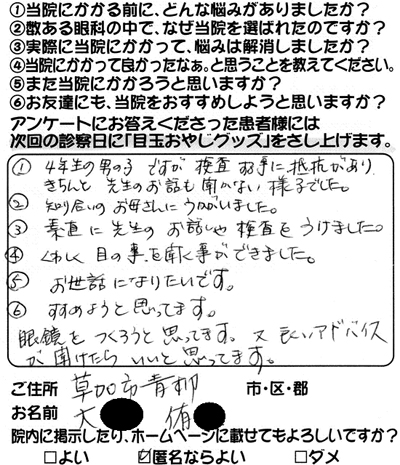 ①当院にかかる前に、どんな悩みがありましたか?
②数ある眼科の中で、なぜ当院を選ばれたのですか?
③実際に当院にかかって、悩みは解消しましたか?
④当院にかかって良かったなぁ。と思うことを教えてください。
⑤また当院にかかろうと思いますか?
⑥お友達にも、当院をおすすめしようと思いますか?
アンケートにお答えくださった患者様には
次回の診察日に「目玉おやじグッズ」をさし上げます。
① 4年生の男の子ですが 検査 に抵抗があり
きちんと 先生のお話も聞かない様子でした。
② 知り合いのお母さんにうかがいました。
③ 素直に先生のお話しや検査をうけました。
④ くわしく目の事を聞く事ができました。
⑤ お世話になりたいです。
⑥ すすめようと思ってます。
眼鏡をつくろうと思ってます。又良いアドバイス
が聞けたらいいと思ってます。
ご住所 草加市青柳 市・区・郡
お名前 大 侑
院内に掲示したり、ホームページに載せてもよろしいですか?
□よい ☑匿名ならよい □ダメ